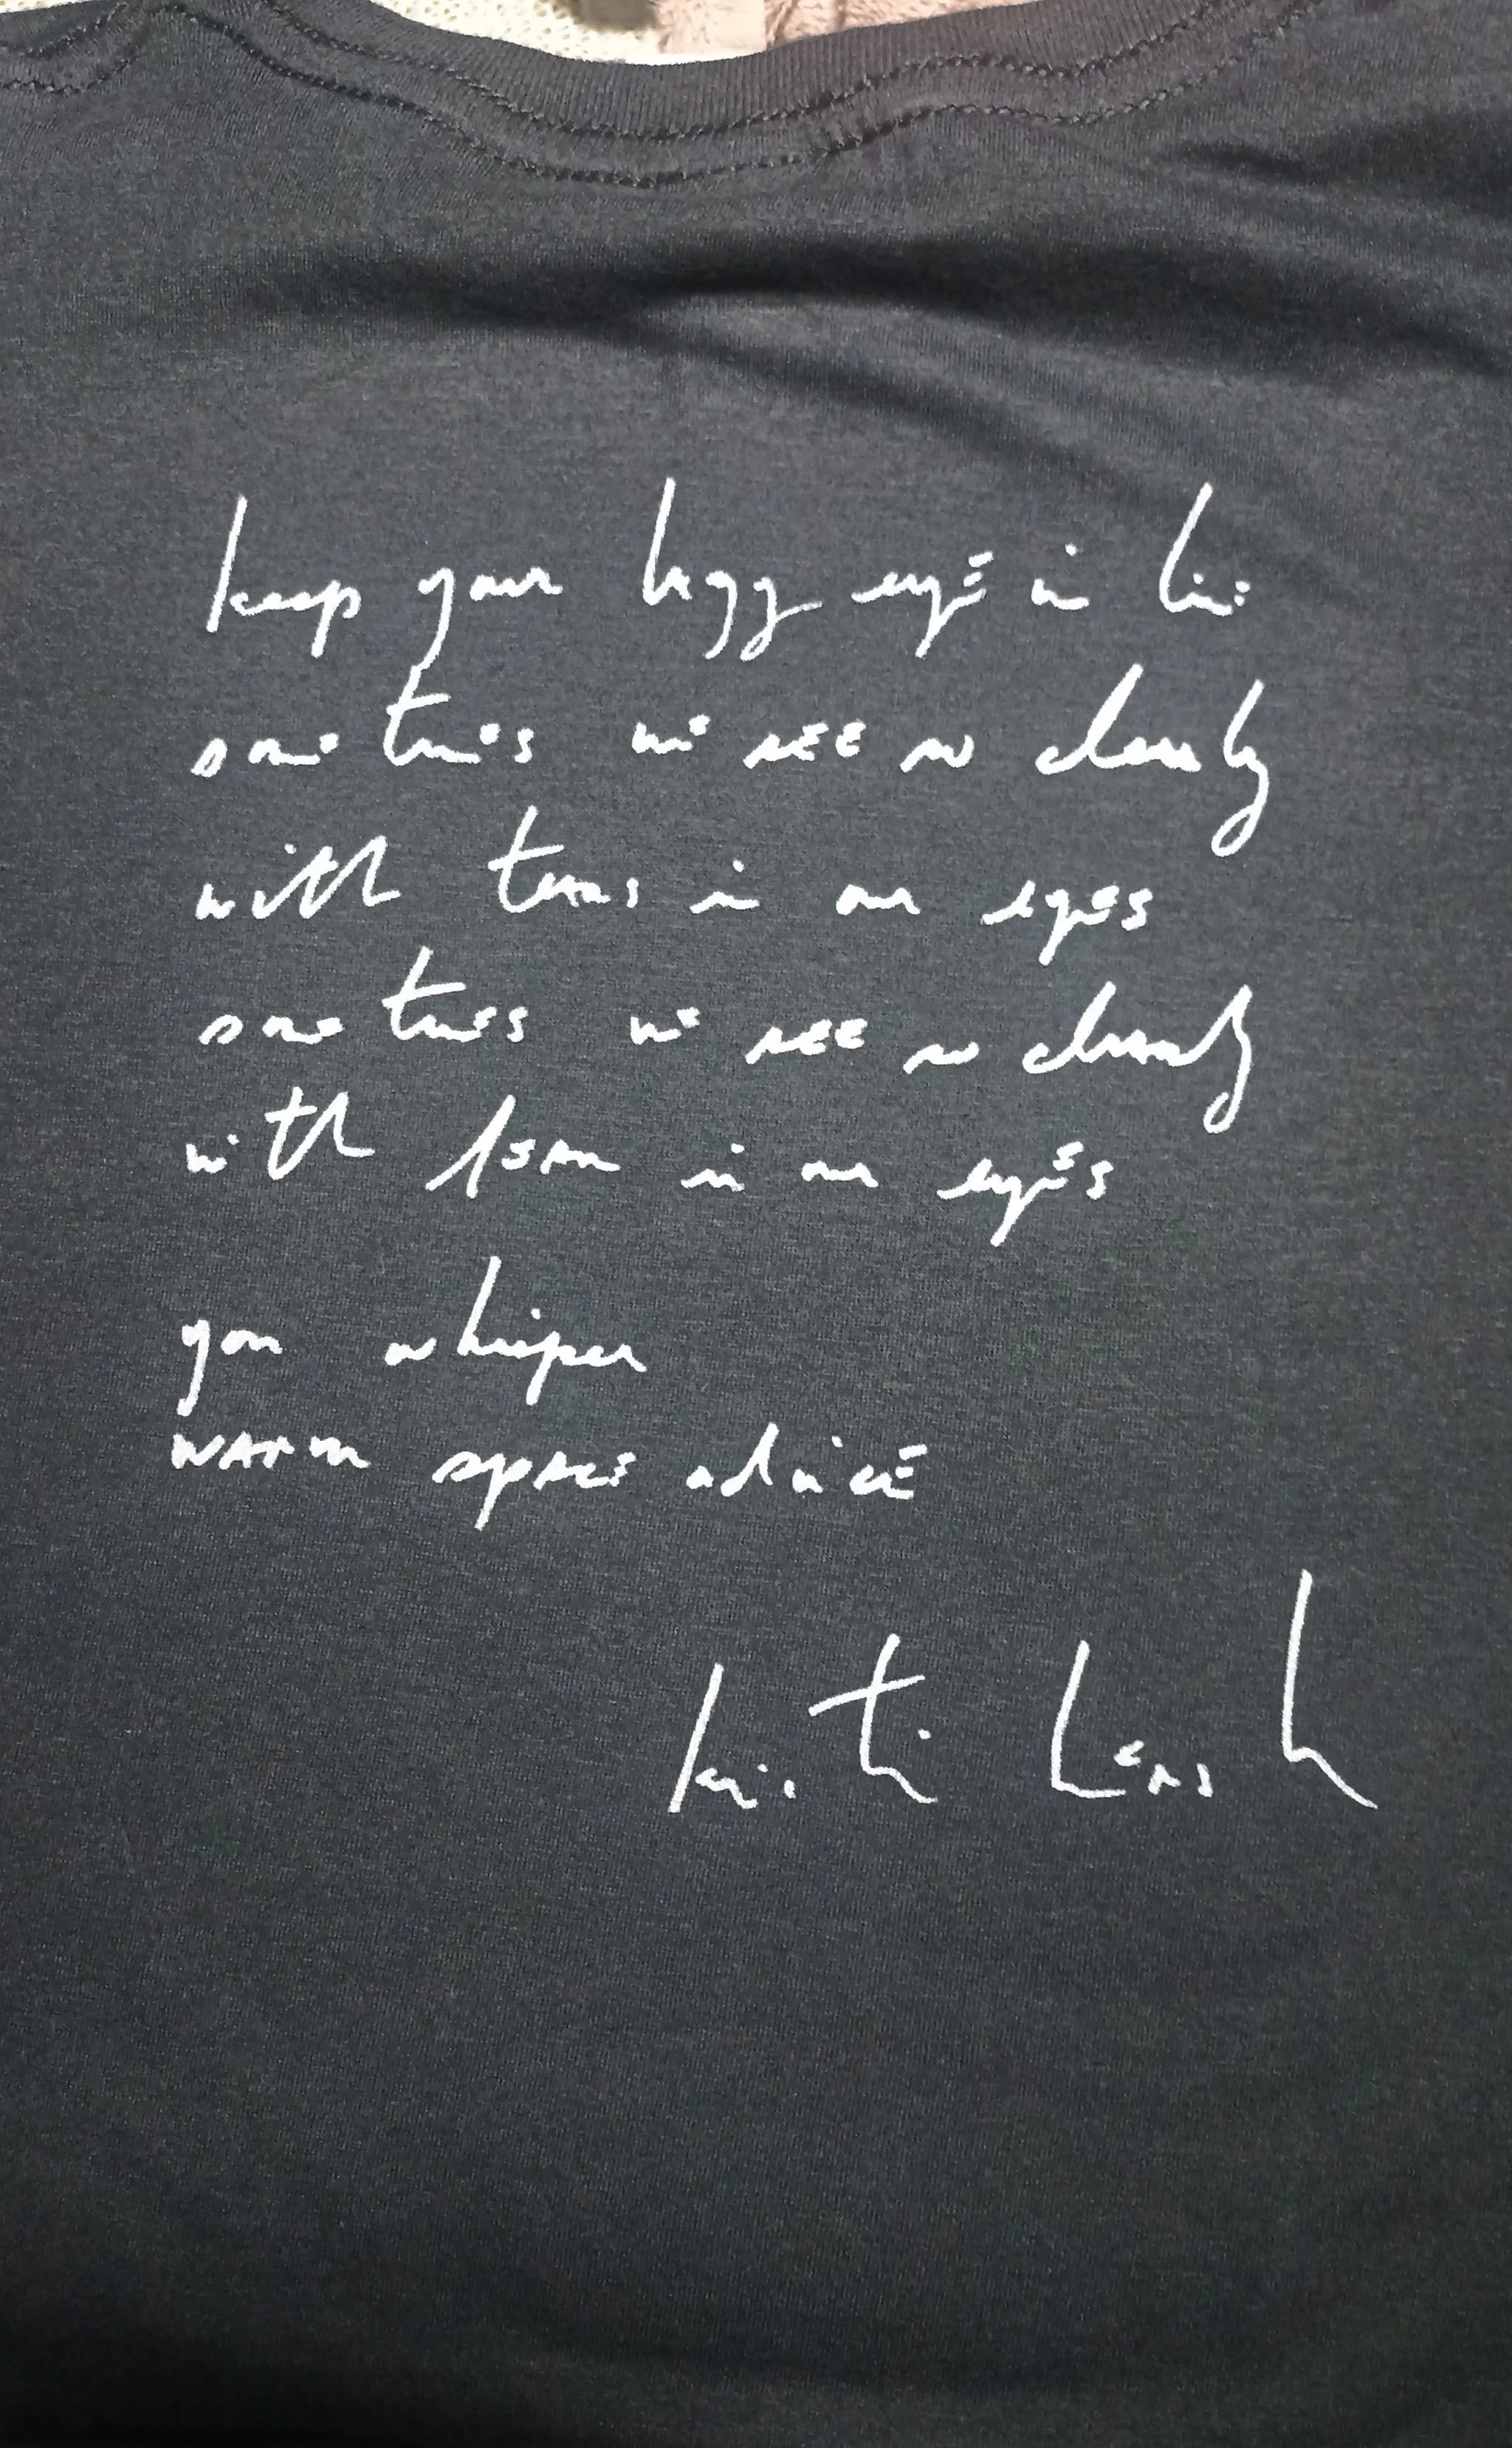 keep your foggy eye in line
sometimes we see so clearly
with tears in our eyes
sometimes we see so clearly
with fear in our eyes
you whisper
warm space advice
Kristin Hersh